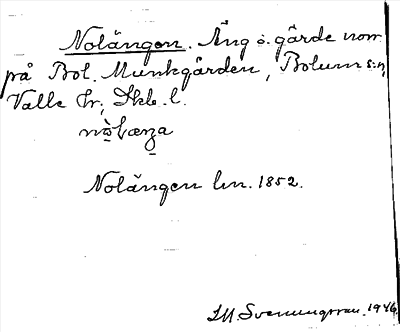 Nolängen. Äng o. gärde norr
på Bol. Munkgården, Bolum s:n,
Valle hr, Skb. l.
Nolängen lm. 1852.
S.M. Svenungsson. 1946.